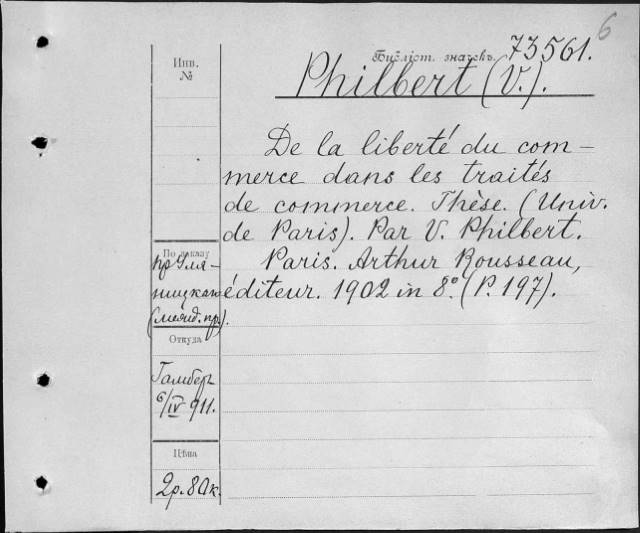 6
Инв.
№
Библіот. значекъ. 73561.
Philbert (V.).
De la liberté du com-
merce dans les traités
de commerce. Thèse. (Univ.
de Paris). Par V. Philbert.
Paris. Arthur Rousseau,
éditeur. 1902 in 8°. (P. 197).
По заказу
пр Уля-
ницкаго
(межд. пр.).
Откуда
Гамберъ
6/IV 911.
Цѣна
2р. 80к.